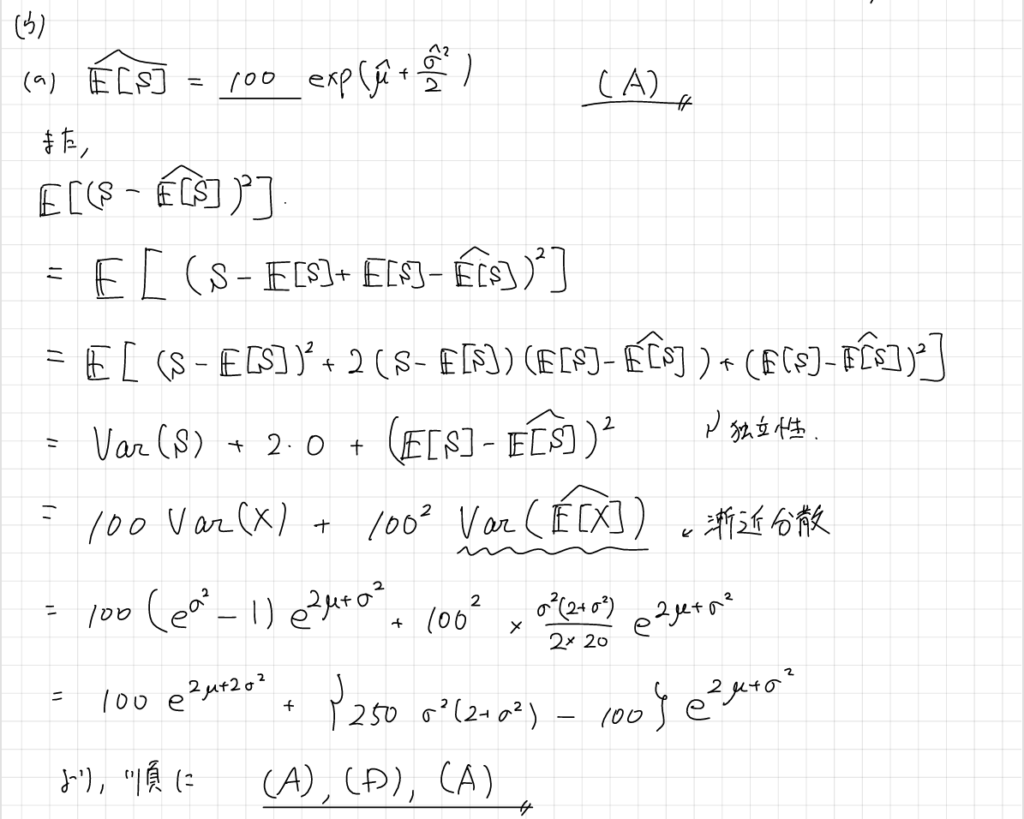 (ち)
(a) \widehat{E[S]} = 100 exp(μ̂ + σ̂²/2) (A)
また,
E[(S - \widehat{E[S]})²].
= E[(S - E[S] + E[S] - \widehat{E[S]})²]
= E[(S - E[S])² + 2(S - E[S])(E[S] - \widehat{E[S]}) + (E[S] - \widehat{E[S]})²]
= Var(S) + 2・0 + (E[S] - \widehat{E[S]})² 独立性.
= 100 Var(X) + 100² Var(\widehat{E[X]}) 漸近分散
= 100 (e^{σ²} - 1) e^{2μ+σ²} + 100² × σ²(2+σ²)/(2×20) e^{2μ+σ²}
= 100 e^{2μ+2σ²} + {250 σ²(2+σ²) - 100} e^{2μ+σ²}
より, 順に (A), (D), (A)